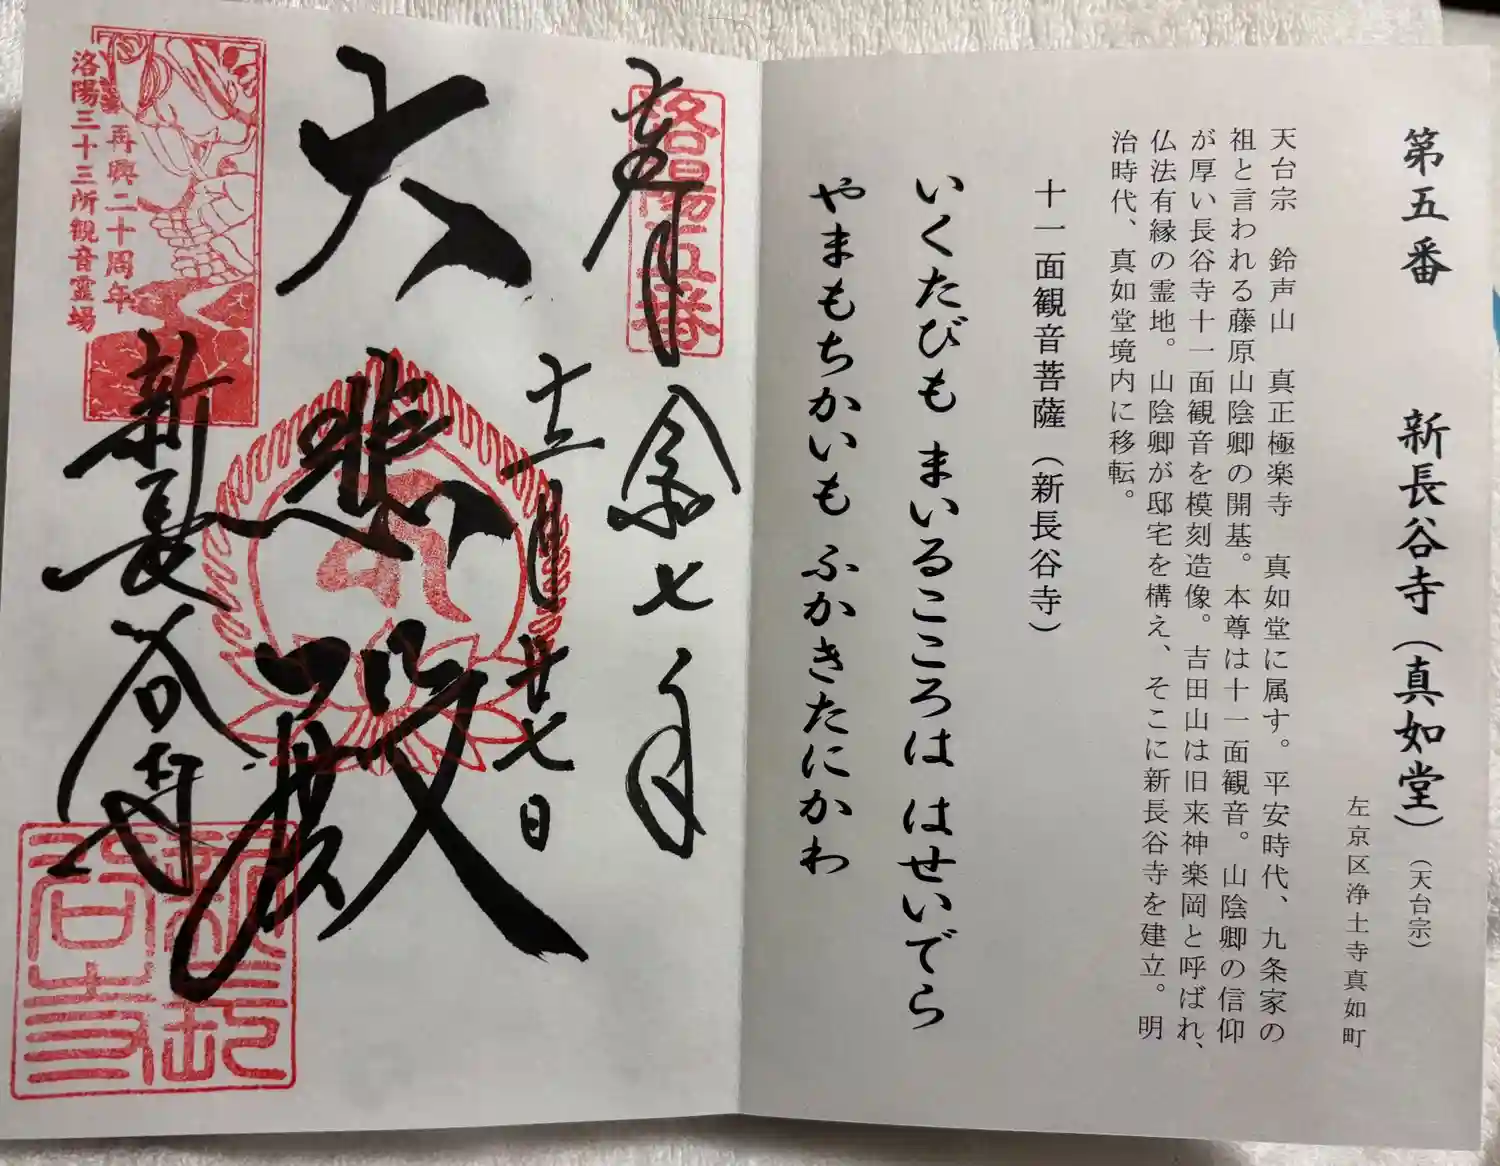 第五番　新長谷寺（真如堂）（天台宗）
左京区浄土寺真如町
天台宗　鈴声山　真正極楽寺　真如堂に属す。平安時代、九条家の
祖と言われる藤原山陰卿の開基。本尊は十一面観音。山陰卿の信仰
が厚い長谷寺十一面観音を模刻造像。吉田山は旧来神楽岡と呼ばれ、
仏法有縁の霊地。山陰卿が邸宅を構え、そこに新長谷寺を建立。明
治時代、真如堂境内に移転。
十一面観音菩薩（新長谷寺）
いくたびも まいるこころは はせいでら
やまもちかいも ふかきたにかわ
洛陽五番
奉拝
令七年
十二月廿七日
大悲殿
新長谷寺
再興二十周年
洛陽三十三所観音霊場
新長谷寺